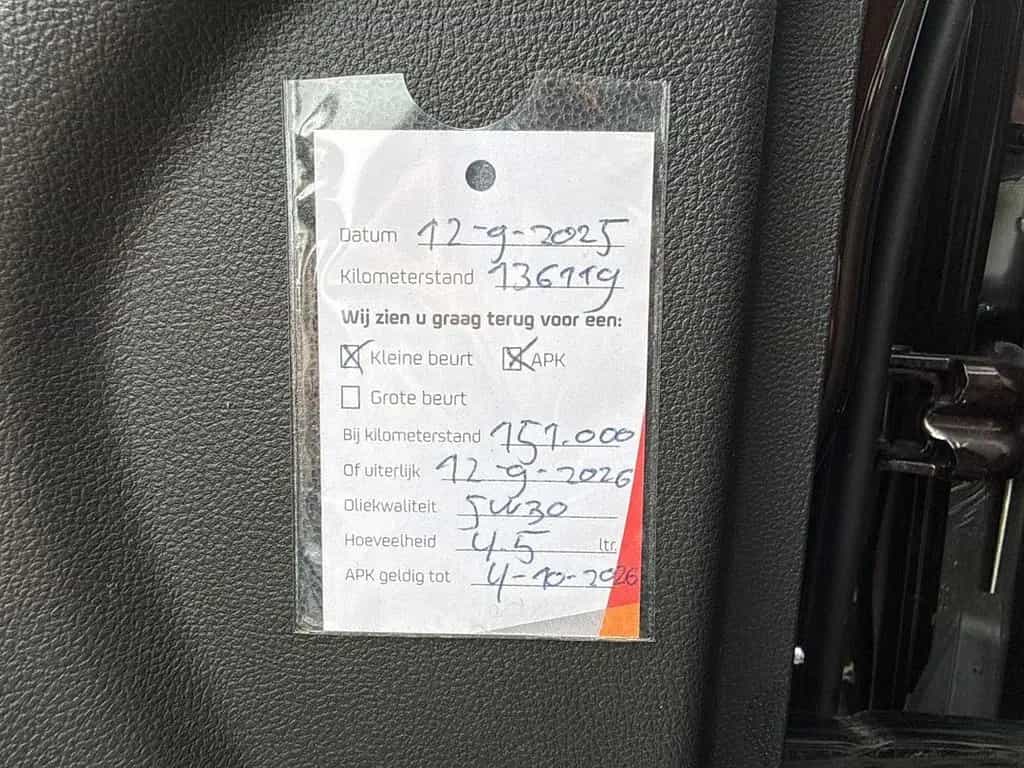 Datum 12-9-2025
Kilometerstand 136119
Wij zien u graag terug voor een:
Kleine beurt APK
Grote beurt
Bij kilometerstand 151.000
Of uiterlijk 12-9-2026
Oliekwaliteit 5W30
Hoeveelheid 4.5 ltr.
APK geldig tot 4-10-2026